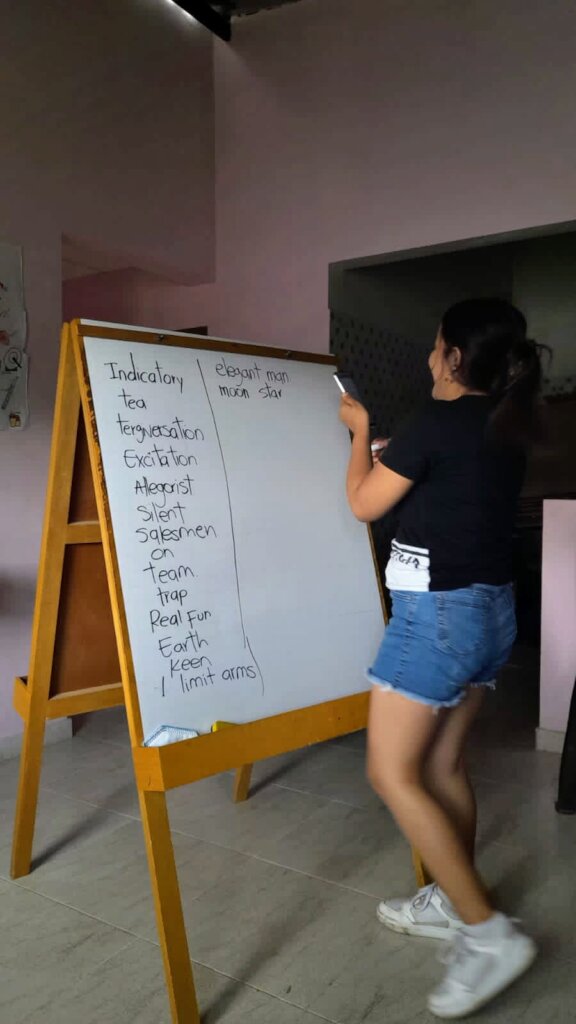 Indicatory
tea
tergiversation
Excitation
Allegorist
Silent
Salesmen
on
Team.
trap
Real Fun
Earth
Keen
limit arms
elegant man
moon star